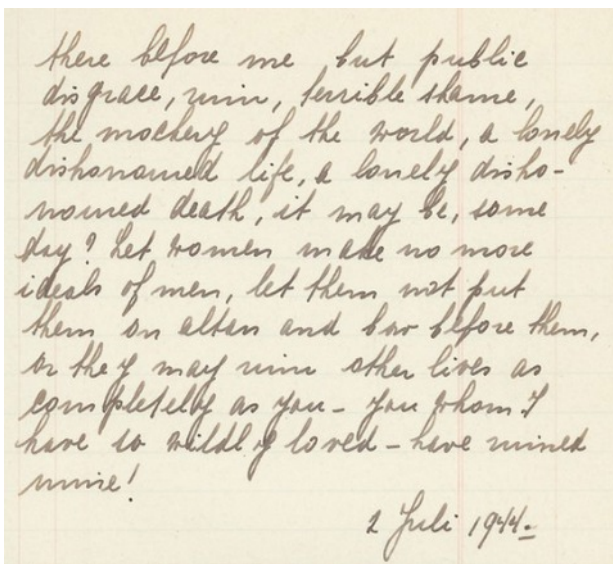 there before me but public
disgrace, ruin, terrible shame,
the mockery of the world, a lonely
dishonoured life, a lonely disho-
noured death, it may be, some
day? Let women make no more
ideals of men, let them not put
them on altars and bow before them,
or they may ruin other lives as
completely as you - you whom I
have so wildly loved - have ruined
mine!
2 Juli 1944.